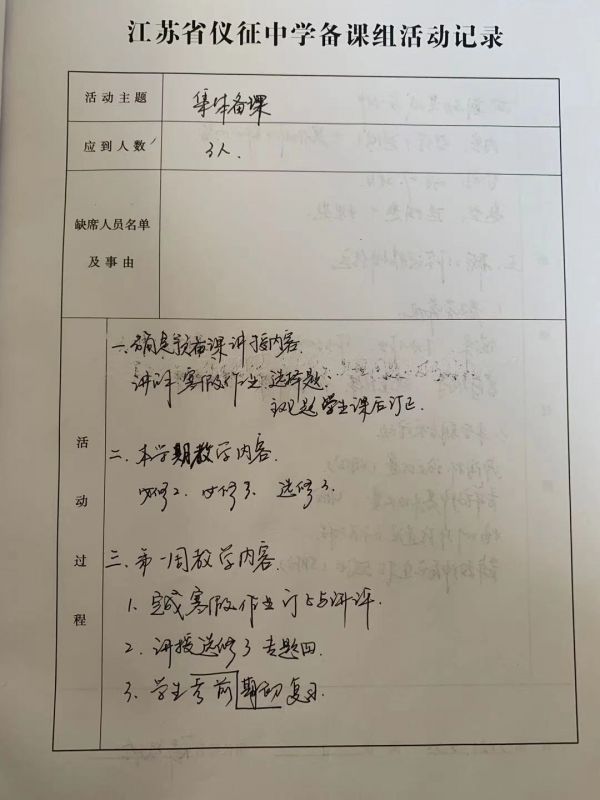 江苏省仪征中学备课组活动记录
活动主题
集体备课
应到人数
3人.
缺席人员名单
及事由
活动过程
一、确定备课讲授内容.
讲评寒假作业 选择题;
主观题学生课后订正.
二、本学期教学内容.
必修2. 必修3. 选修3.
三、第一周教学内容.
1. 完成寒假作业订正与讲评.
2. 讲授选修3 专题四.
3. 学生考前期初复习.